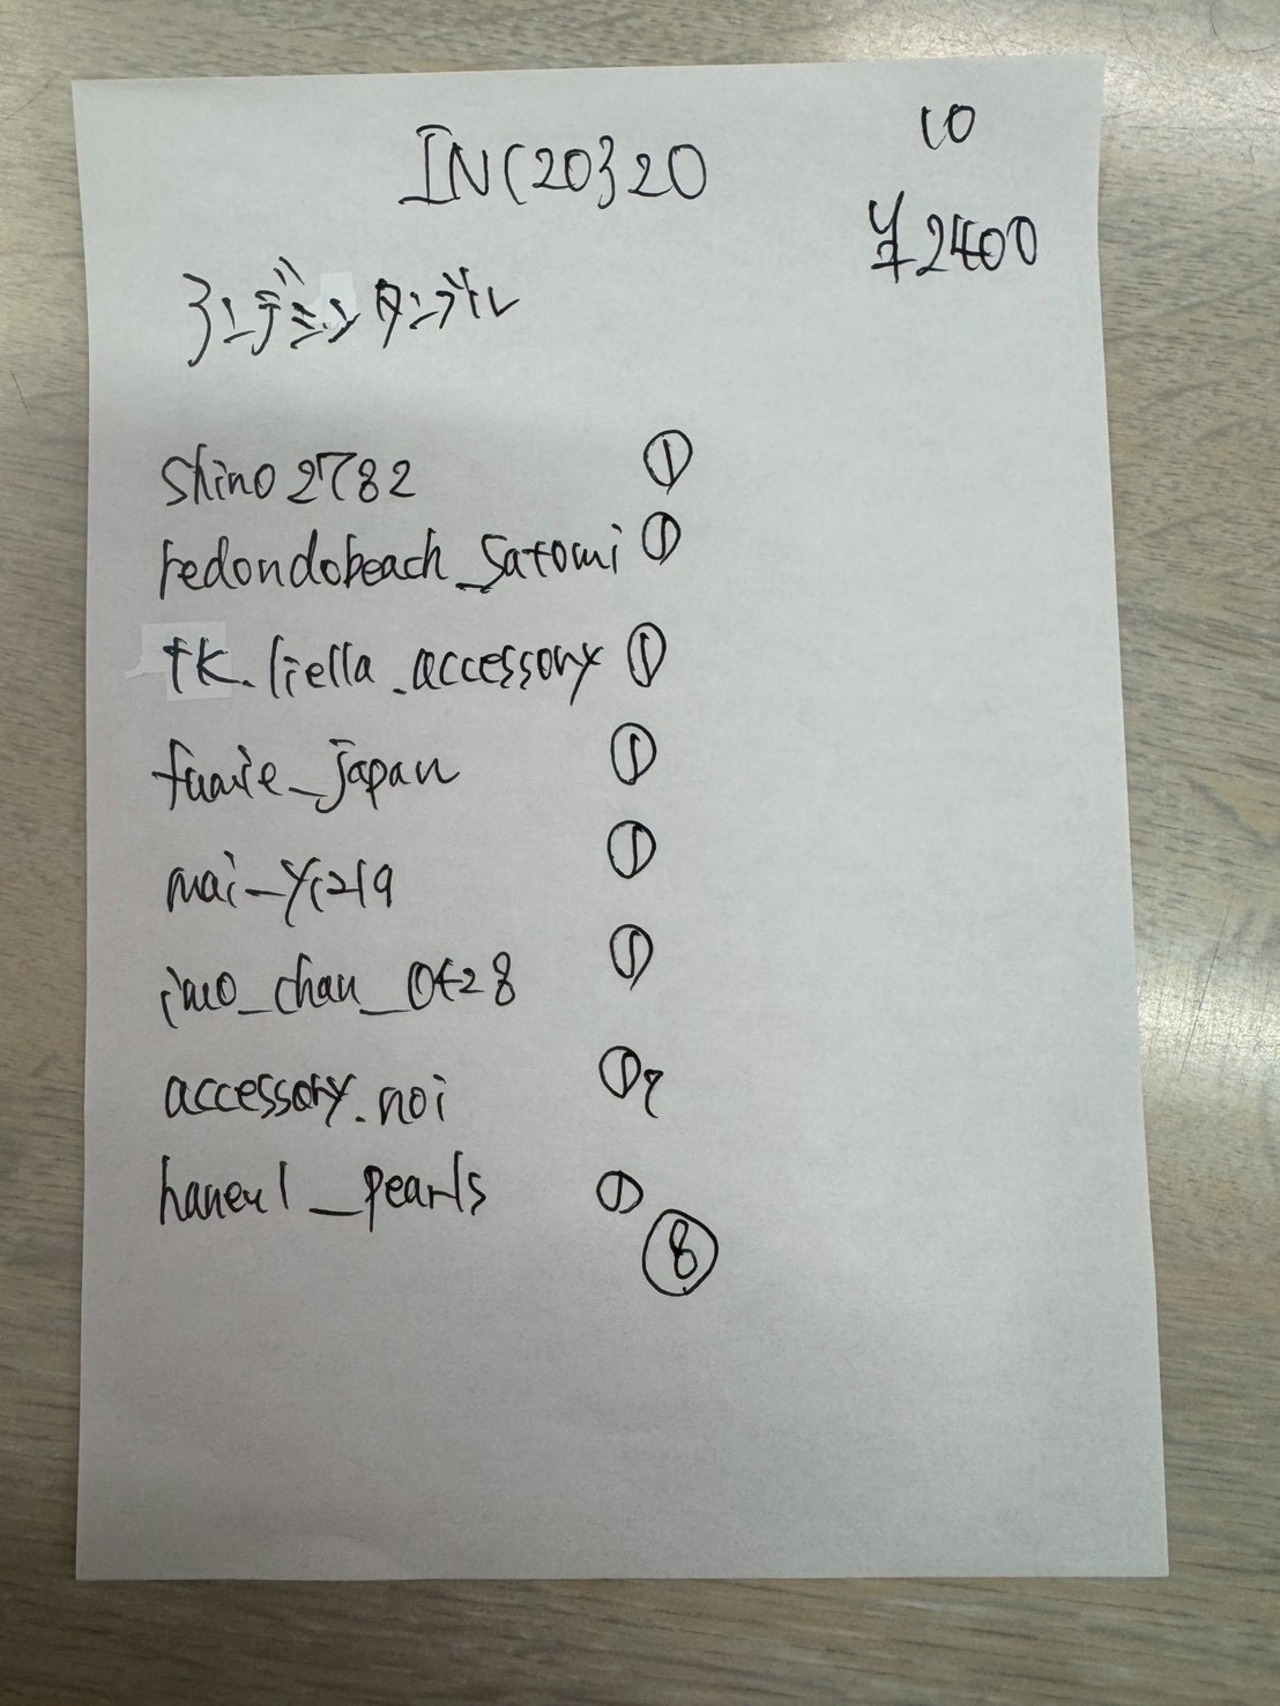 IN(20)20
10
¥2400
shino2782 ①
redondobeach_satomi ①
tk.liella.accessory ①
_japan ①
mai_yi219 ①
imo_chan_0428 ①
accessory.noi ①?
haneul_pearls ①
⑧